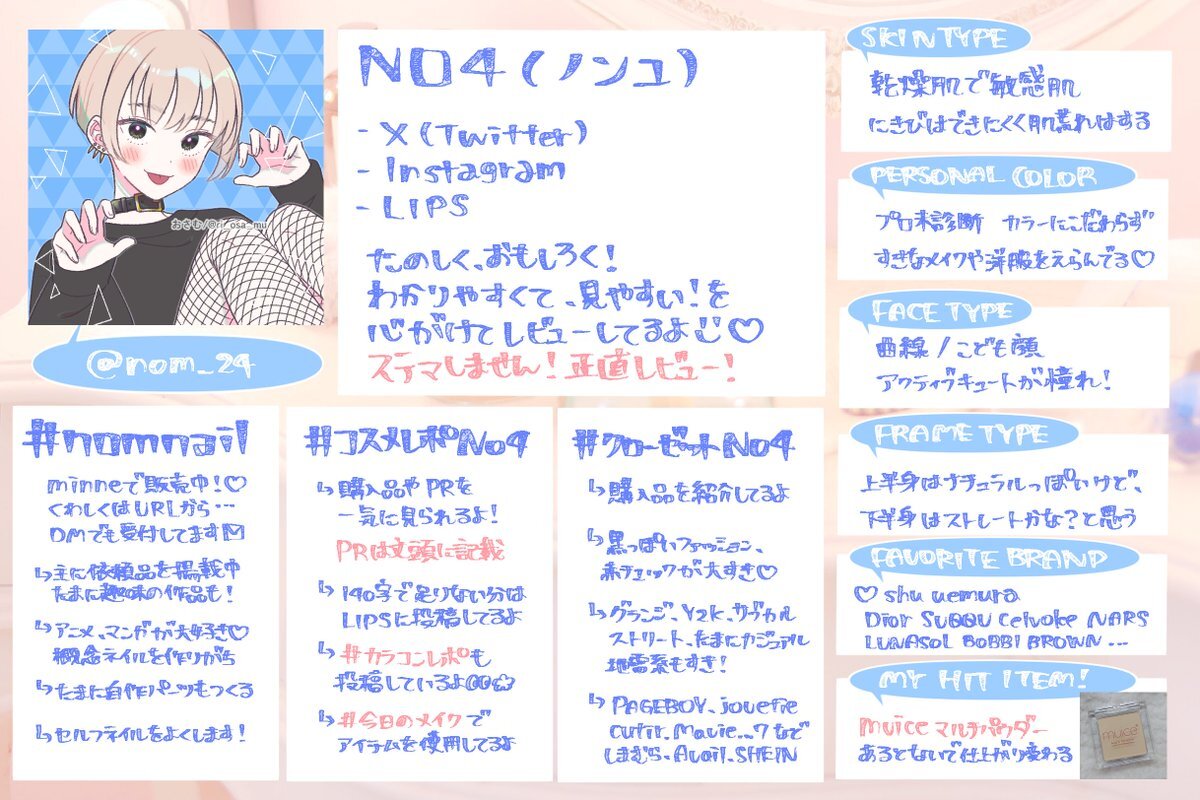 おさむ/@rir_osa_mu
@nom_24
NO4(ノンユ)
- X(Twitter)
- Instagram
- LIPS
たのしく、おもしろく!
わかりやすくて、見やすい!を
心がけてレビューしてるよ♡
ステマしません!正直レビュー!
#nomnail
minneで販売中!♡
くわしくはURLから…
DMでも受付してます
↳主に依頼品を掲載中
たまに趣味の作品も!
↳アニメ、マンガが大好き♡
概念ネイルを作りがち
↳たまに自作パーツもつくる
↳セルフネイルをよくします!
#コスメレポNo4
↳購入品やPRを
一気に見られるよ!
PRは文頭に記載
↳140字で足りない分は
LIPSに投稿してるよ
↳#カラコンレポも
投稿しているよ
↳#今日のメイクで
アイテムを使用してるよ
#クローゼットNo4
↳購入品を紹介してるよ
↳黒っぽいファッション、
赤チェックが大すき♡
↳グランジ、Y2K、サブカル
ストリート、たまにカジュアル
地雷系もすき!
↳PAGEBOY、jouetie
cutir、Mavie…ワなど
しまむら、Avail、SHEIN
SKIN TYPE
乾燥肌で敏感肌
にきびはできにくく肌荒れはする
PERSONAL COLOR
プロ未診断 カラーにこだわらず
すきなメイクや洋服をえらんでる♡
FACE TYPE
曲線/こども顔
アクティブキュートが憧れ!
FRAME TYPE
上半身はナチュラルっぽいけど、
下半身はストレートかな?と思う
FAVORITE BRAND
♡ shu uemura
Dior SUQQU Celvoke NARS
LUNASOL BOBBI BROWN …
MY HIT ITEM!
muice マルチパウダー
あるとないで仕上がり変わる
muice